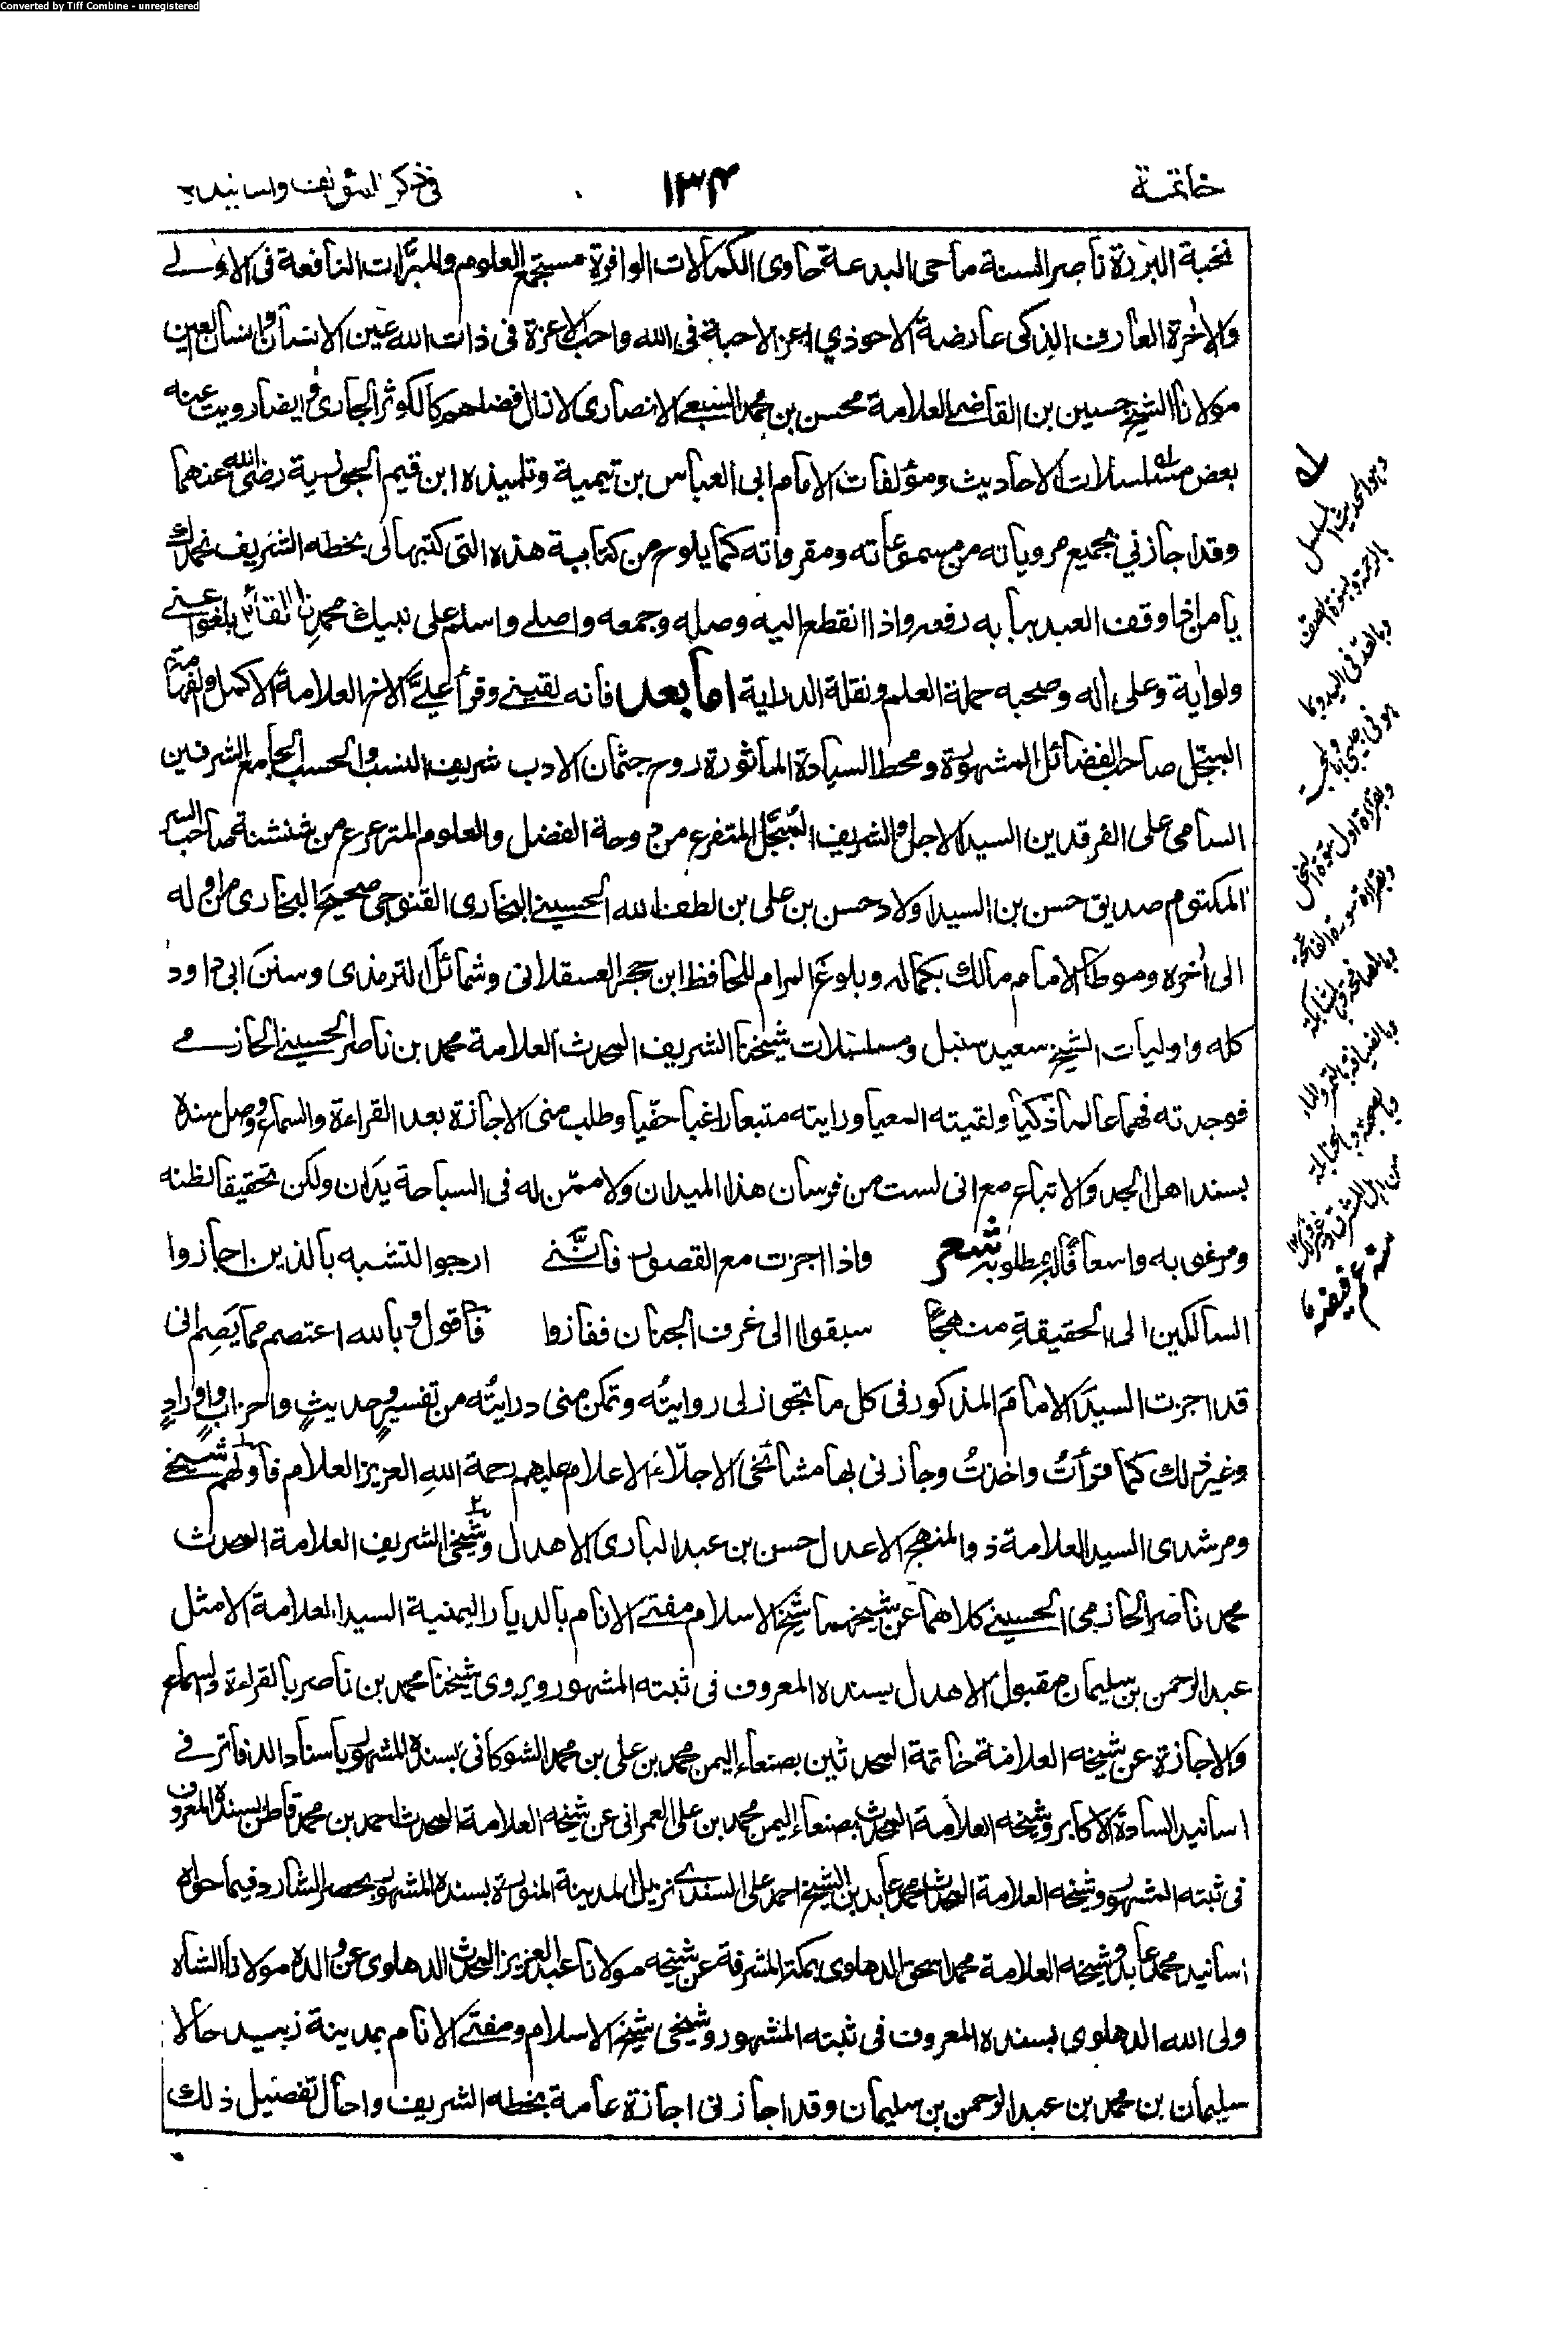 Converted by Tiff Combine - unregistered
خاتمة
١٣٤
في ذكر المؤلف واسانيده
نخبة البررة ناصر السنة ماحى البدعة حاوى الكمالات الوافرة مستجمع العلوم والمبرّات النافعة فى الاولے
والاخرة العارف الذكى عارضة الاحوذي اعز الاحبة فى الله واحب الاعزة فى ذات الله عين الانسان وانسان العين
مولانا الشيخ حسين بن القاضى العلامة محسن بن محمد السبعے الانصارى لازال فضلهم كالكوثر الجارى وايضا رويت عنه
بعض مسلسلات الاحاديث ومؤلفات الامام ابى العباس بن تيمية وتلميذه ابن قيم الجوزية رضى الله عنهما
وقد اجازني بجميع مروياته من مسموعاته ومقرواته كما يلوح من كتابة هذه التى كتبها لى بخطه الشريف نحمدك
يا من اذا وقف العبد ببابه رفعه واذا انقطع اليه وصله وجمعه واصلے واسلم على نبيك محمد القائل بلغوا عنے
ولو اية وعلى اله وصحبه حملة العلم ونقلة الدراية اما بعد فانه لقينے وقرأ علىّ الاخ العلامة الاكمل والفهامة
المبجّل صاحب الفضائل المشهورة ومحط السيادة الماثورة روح جثمان الادب شريف النسب والحسب الجامع الشرفين
السامى على الفرقدين السيد الاجل والشريف المُبَجَّل المتفرع من دوحة الفضل والعلوم المترعرع من شنشنة صاحب السر
المكتوم صديق حسن بن السيد اولاد حسن بن على بن لطف الله الحسينے البخارى القنوجى صحيح البخارى من اوله
الى اٰخره وموطا الامام مالك بكماله وبلوغ المرام للحافظ ابن حجر العسقلانى وشمائل الترمذى وسنن ابى داود
كله واوليات الشيخ سعيد سنبل ومسلسلات شيخنا الشريف المحدث العلامة محمد بن ناصر الحسينے الحازمے
فوجدته فهما عالما ذكيا ولقيته المعيا ورايته متبعا راغبا حفيا وطلب منى الاجازة بعد القراءة والسماع ووصل سنده
بسند اهل الجد والاتباع مع انى لست من فرسان هذا الميدان ولا ممّن له فى السباحة يدان ولكن تحقيقا لظنه
ومرغوبه واسعافا له بمطلوبه شعر واذا اجزت مع القصور فانّنے ارجو التشبه بالذين اجازوا
السالكين الى الحقيقة منهجًا سبقوا الى غرف الجنان ففازوا فاقول وبالله اعتصم مما يَصِم انى
قد اجزت السيّد الامامَ المذكور فى كل ما تجوز لى روايتُه وتمكن منى درايتُه من تفسيرٍ وحديثٍ واحزابٍ واورادٍ
وغير ذلك كما قرأتُ واخذتُ واجازنى بها مشائخى الاجلّاء الاعلام عليهم رحمة اللهِ العزيز العلام فاولهم شيخے
ومرشدى السيد العلامة ذو المنهج الاعدل حسن بن عبد البارى الاهدل وشيخى الشريف العلامة المحدث
محمد ناصر الحازمى الحسينے كلاهما عن شيخهما شيخ الاسلام مفتے الانام بالديار اليمنية السيد العلامة الامثل
عبد الرحمن بن سليمان مقبول الاهدل بسنده المعروف فى ثبته المشهور ويروى شيخنا محمد بن ناصر بالقراءة والسماع
والاجازة عن شيخه العلامة خاتمة المحدثين بصنعاء اليمن محمد بن على بن محمد الشوكانى بسنده المشهور باسناد الدفاتر فے
اسانيد السادة الاكابر وشيخه العلامة المحدث بصنعاء اليمن محمد بن على العمرانى عن شيخه العلامة المحدث احمد بن محمد قاطن بسنده المعروف
فى ثبته المشهور وشيخه العلامة المحدث محمد عابد بن الشيخ احمد على السندے نزيل المدينة المنورة بسنده المشهور بحصر الشارد فيما حواه
اسانيد محمد عابد وشيخه العلامة محمد اسحق الدهلوى بمكة المشرفة عن شيخه مولانا عبد العزيز المحدث الدهلوى عن والده مولانا الشاه
ولى الله الدهلوى بسنده المعروف فى ثبته المشهور وشيخى شيخ الاسلام ومفتے الانام بمدينة زبيد حالا
سليمان بن محمد بن عبد الرحمن بن سليمان وقد اجازنى اجازة عامة بخطه الشريف واحال تفصيل ذلك
له
وهو الحديث المسلسل
بالرحمة وبسورة الصف
وبالعد فى اليد
وبقراءة اول سورة النحل
وبقراءة سورة الفاتحة
وبالمصافحة وبالمشابكة
وبالضيافة بالتمر والماء